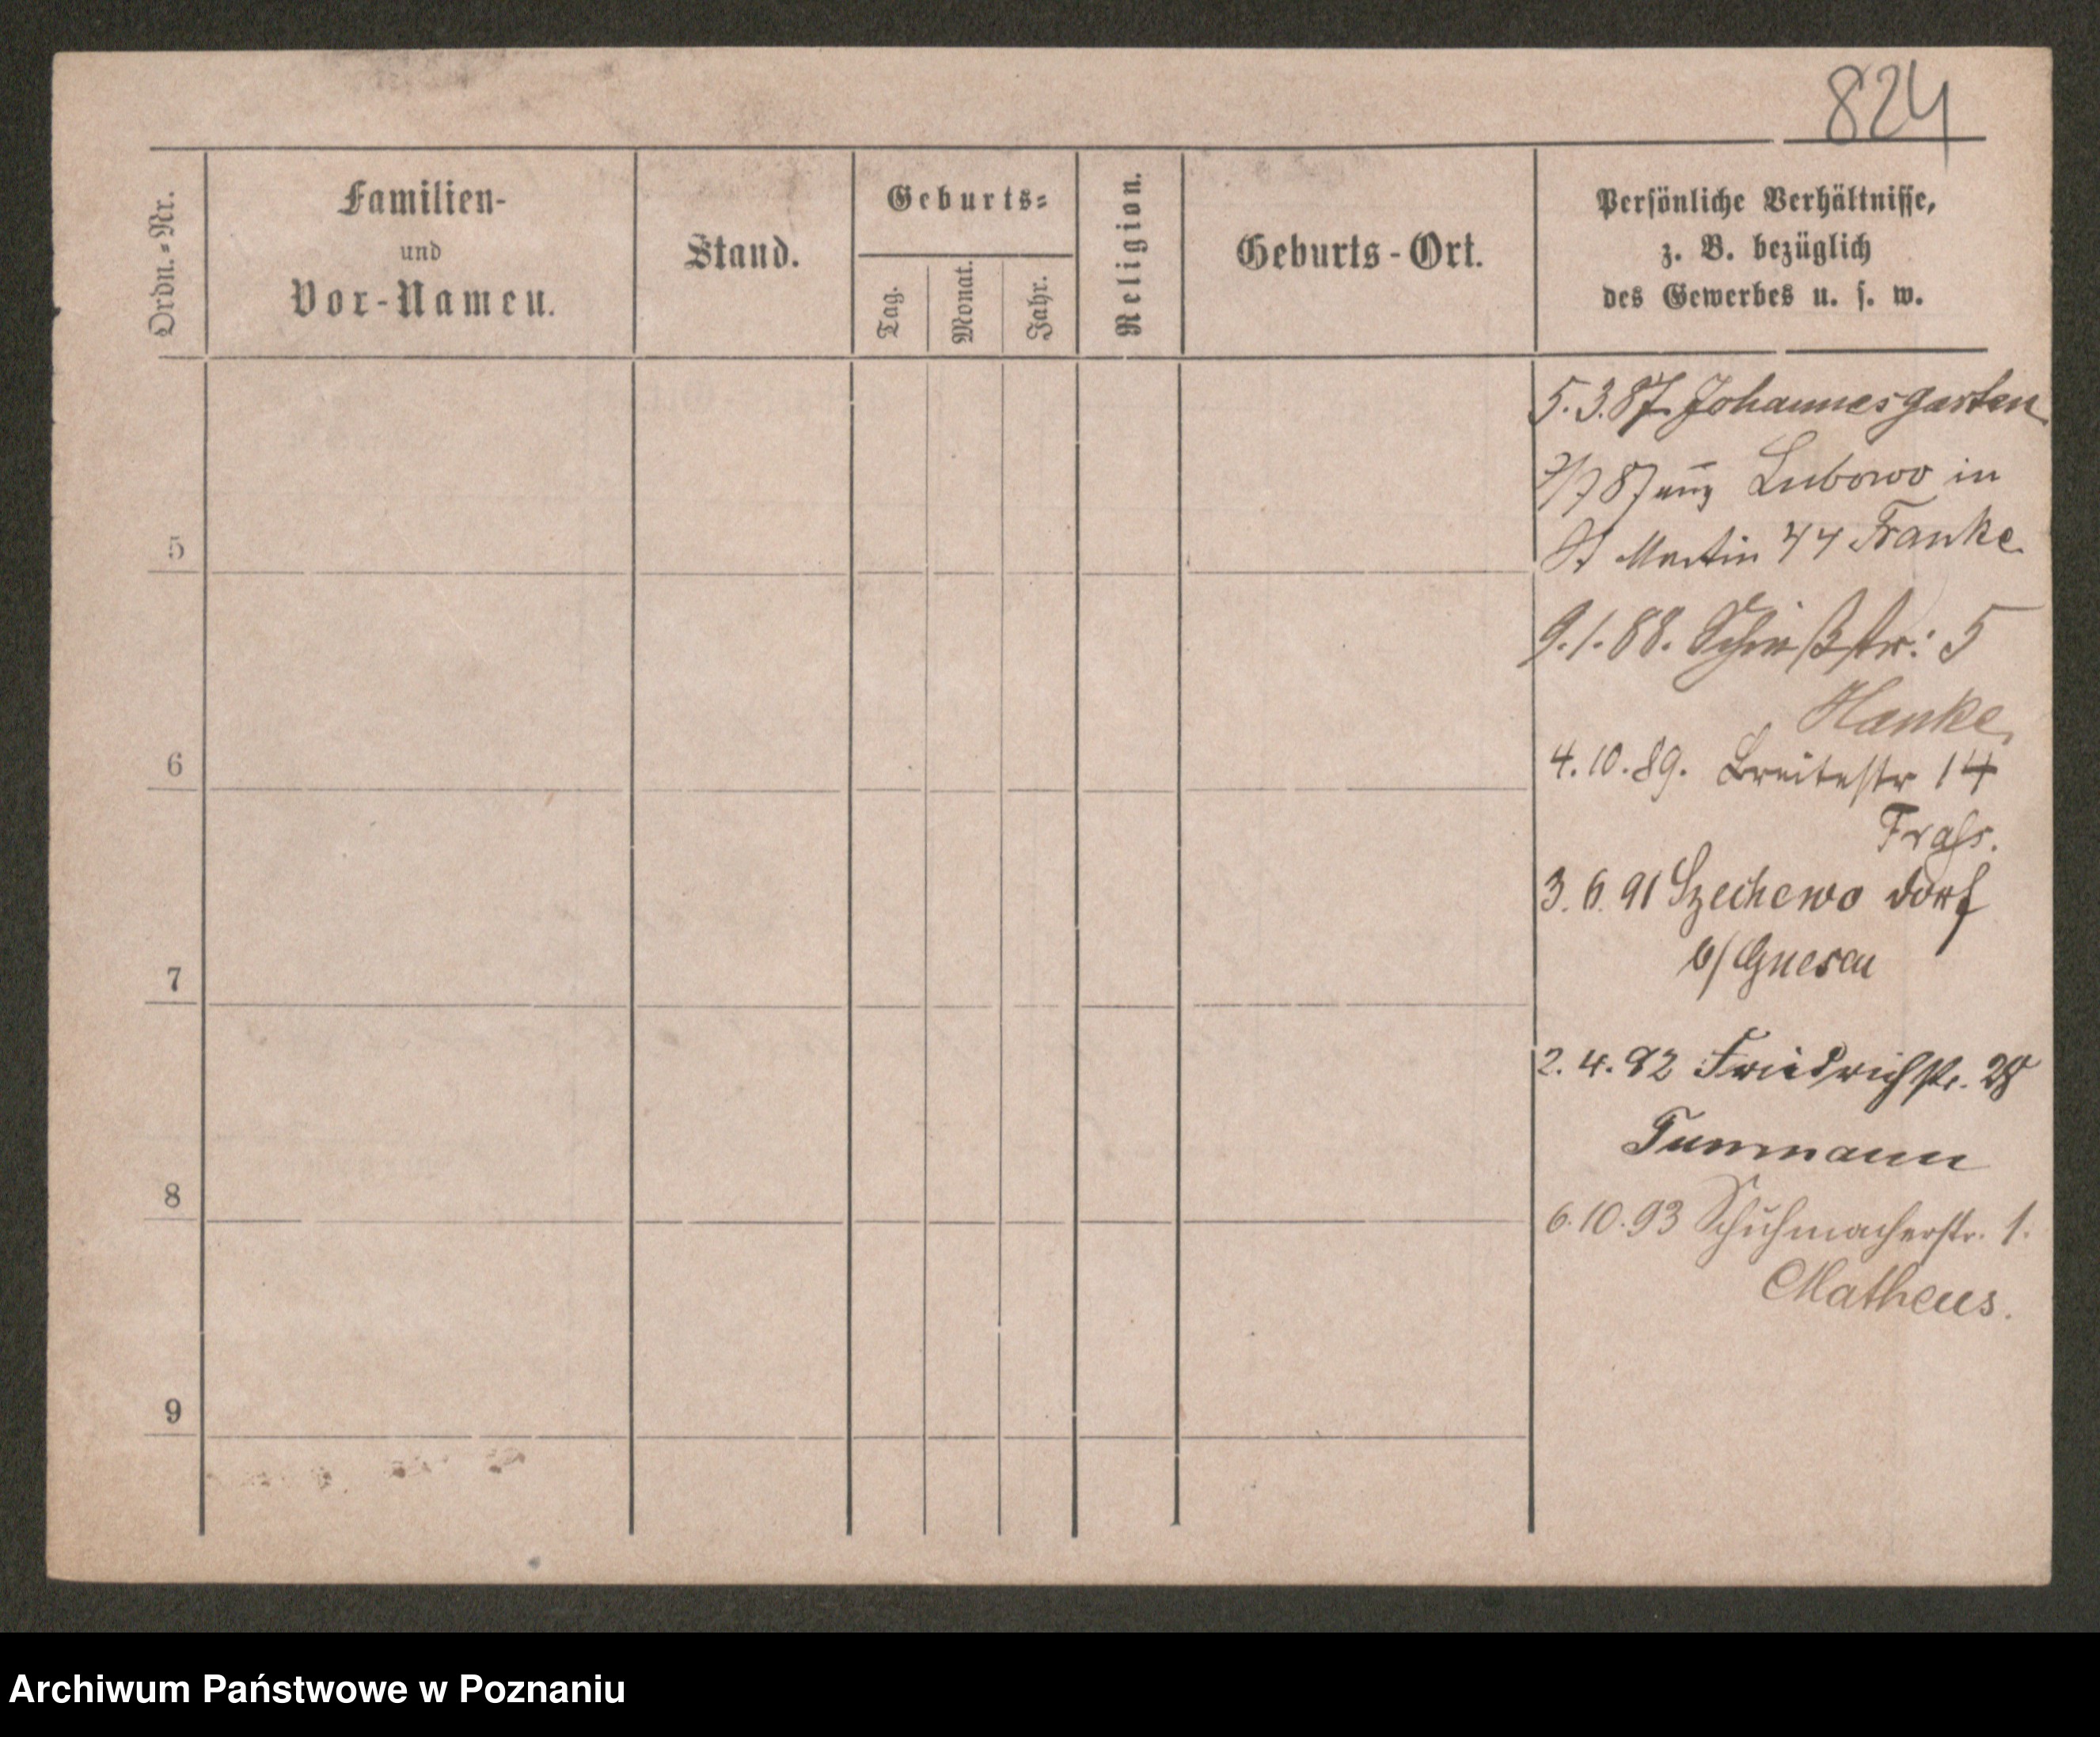 824
Ordn.-Nr.
Familien-
und
Vor-Namen.
Stand.
Geburts-
Tag.
Monat.
Jahr.
Religion.
Geburts-Ort.
Persönliche Verhältnisse,
z. B. bezüglich
des Gewerbes u. s. w.
5.3.87. Johannesgarten
87 Lubowo in
St Martin 44 Franke
5
9.1.88. Schießstr: 5
Hanke
6
4.10.89. Breitestr 14
3. 6. 91 dorf
b/ Gnesen
7
2. 4. 92 Friedrichstr. 28
Tunmann
8
6.10.93 Schuhmacherstr. 1.
Matheus.
9
Archiwum Państwowe w Poznaniu